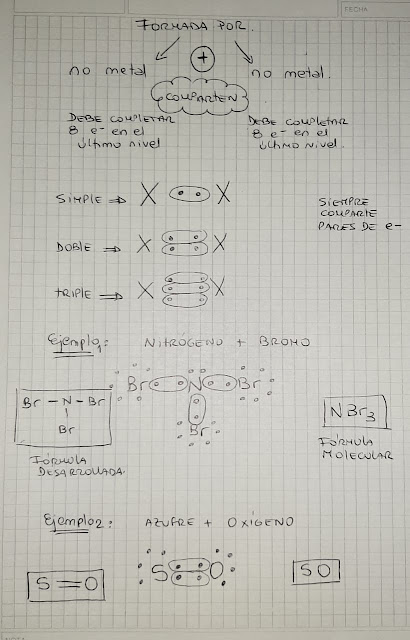 FECHA
FORMADA POR.
+
no metal
no metal.
COMPARTEN
DEBE COMPLETAR
8 e- en el
último nivel
DEBE COMPLETAR
8 e- en el
último nivel.
SIMPLE ⇒ X X
DOBLE ⇒ X X
TRIPLE ⇒ X X
SIEMPRE
COMPARTE
PARES DE e-
Ejemplo1: NITRÓGENO + BROMO
Br N Br
Br
Br - N - Br
|
Br
FÓRMULA
DESARROLLADA.
NBr3
FÓRMULA
MOLECULAR
Ejemplo2: AZUFRE + OXÍGENO
S = O
S O
SO